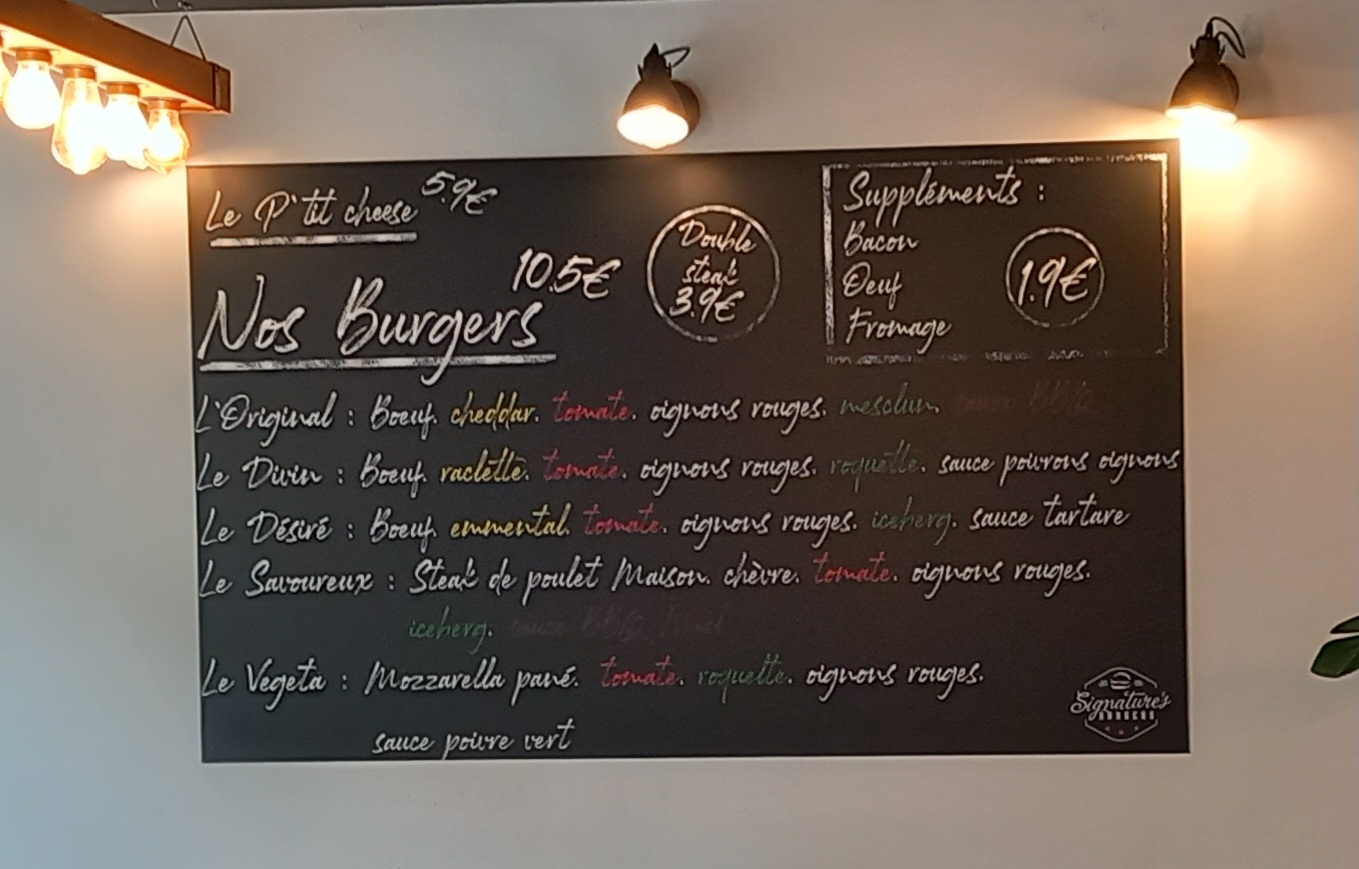 Le P'tit cheese 5.9€
Nos Burgers 10.5€
Double
steak
3.9€
Suppléments :
Bacon
Oeuf
Fromage
1.9€
L'Original : Boeuf. cheddar. tomate. oignons rouges. mesclun. sauce BBQ
Le Divin : Boeuf. raclette. tomate. oignons rouges. roquette. sauce poivrons oignons
Le Désiré : Boeuf. emmental. tomate. oignons rouges. iceberg. sauce tartare
Le Savoureux : Steak de poulet Maison. chèvre. tomate. oignons rouges.
iceberg. sauce BBQ Miel
Le Vegeta : Mozzarella pané. tomate. roquette. oignons rouges.
sauce poivre vert
Signature's
BURGERS